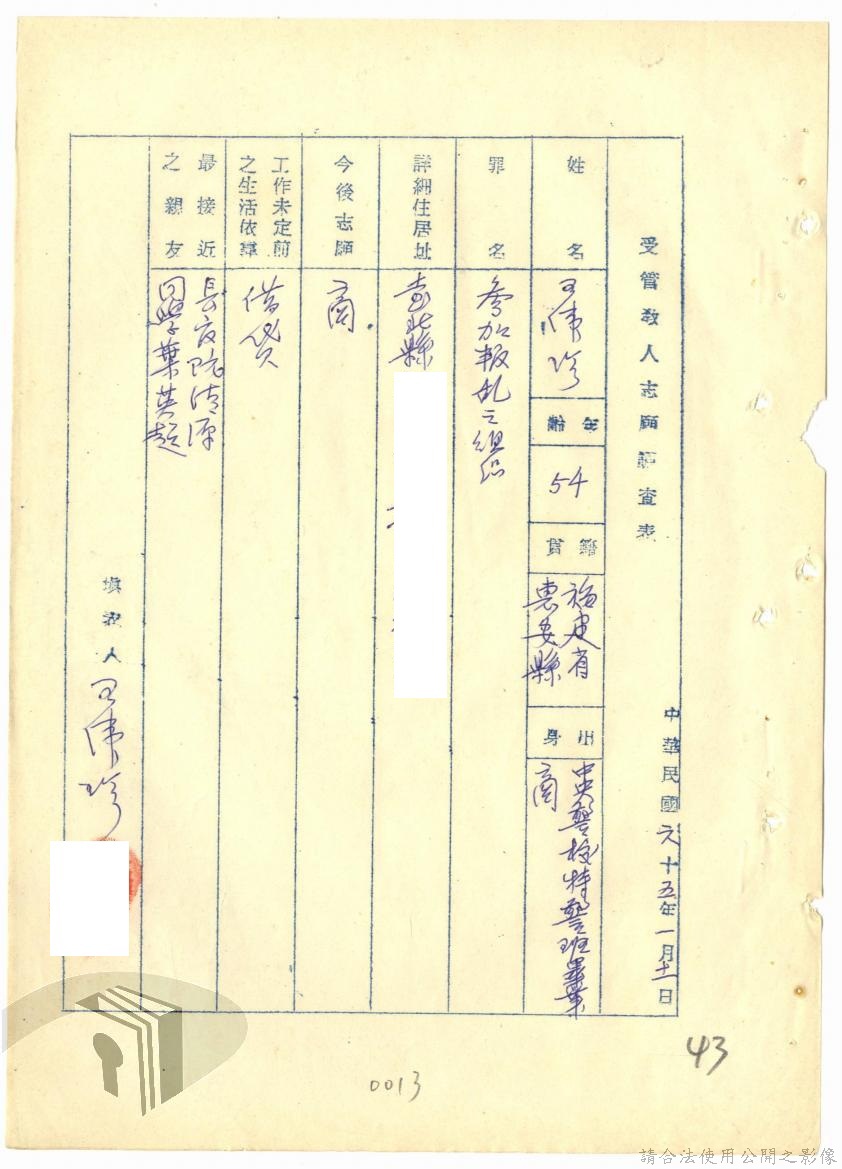 受管教人志願調查表
中華民國六十五年一月十一日
姓名
王偉珍
年齡
54
籍貫
福建省
惠安縣
出身
中央警校特警班畢業
商
罪名
參加叛乱之組織
詳細住居址
臺北縣
今後志願
商
工作未定前
之生活依靠
借貸
最接近
之親友
長友阮清源
同學葉英超
填表人 王偉珍
43
0013
請合法使用公開之影像